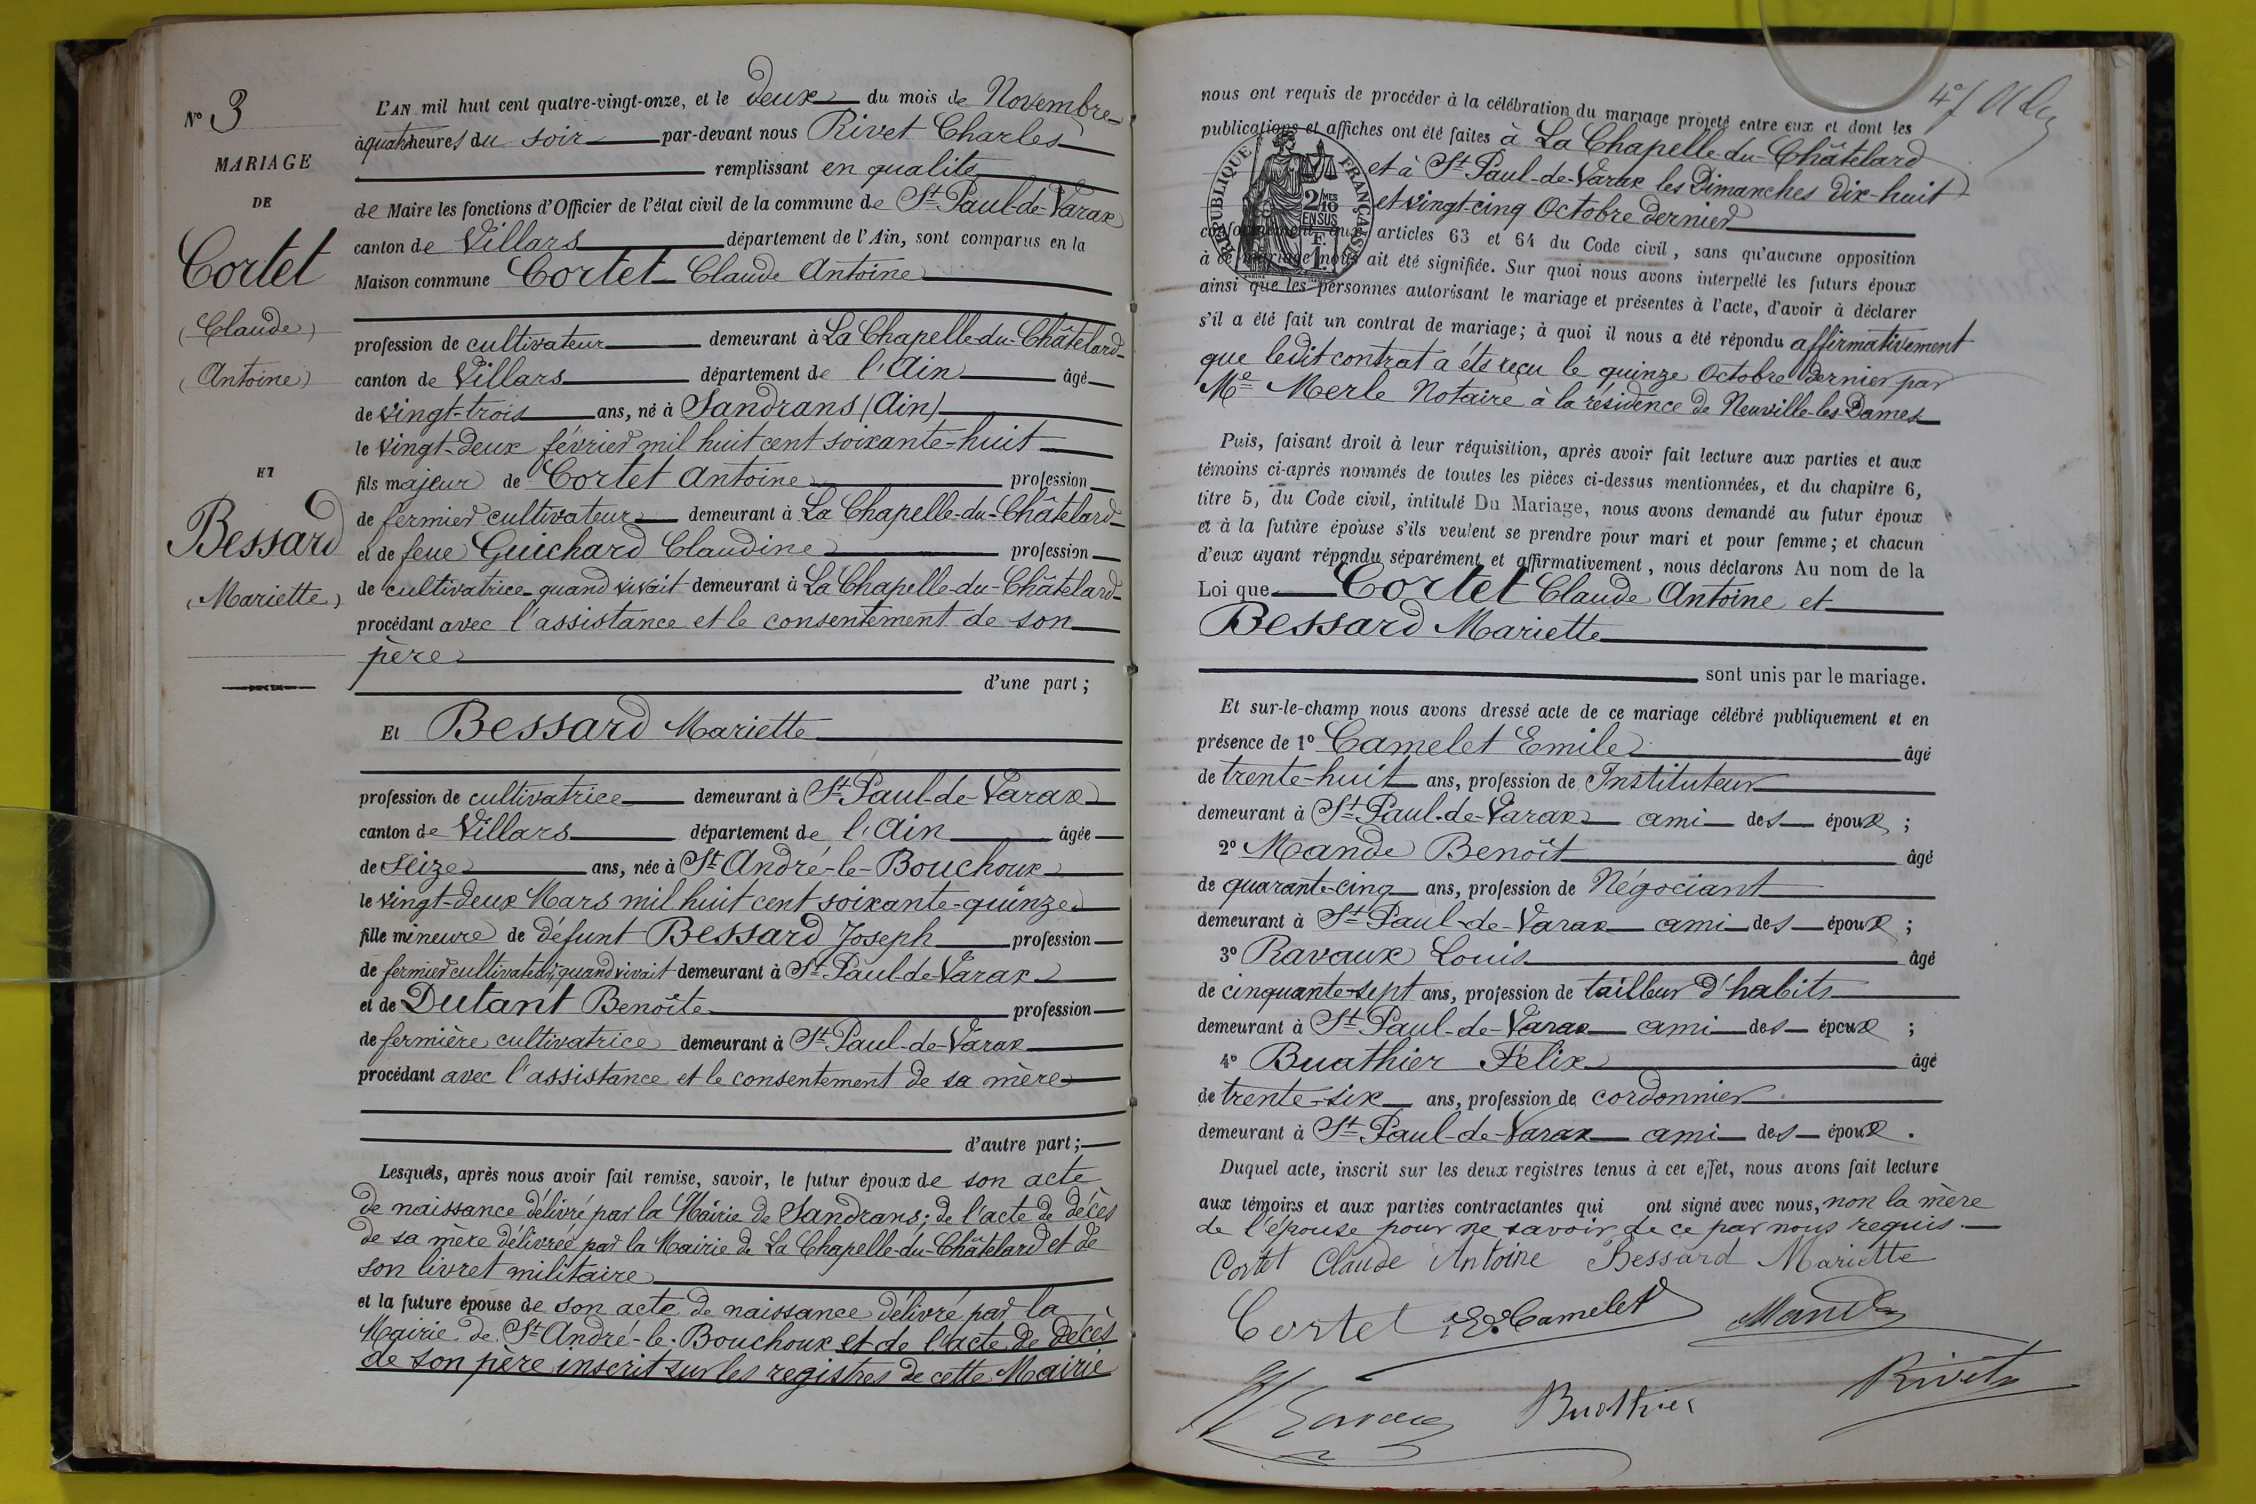 N° 3
MARIAGE
DE
Cortet
(Claude)
(Antoine)
ET
Bessard
(Mariette)
L'AN mil huit cent quatre-vingt-onze, et le deux du mois de Novembre
à quatre heures du soir par-devant nous Rivet Charles
remplissant en qualité
de Maire les fonctions d'Officier de l'état civil de la commune de St Paul-de-Varax
canton de Villars département de l'Ain, sont comparus en la
Maison commune Cortet Claude Antoine
profession de cultivateur demeurant à La Chapelle-du-Châtelard
canton de Villars département de l'Ain âgé
de vingt-trois ans, né à Sandrans (Ain)
le vingt-deux février mil huit cent soixante-huit
fils majeur de Cortet Antoine profession
de fermier cultivateur demeurant à La Chapelle-du-Châtelard
et de feue Guichard Claudine profession
de cultivatrice quand vivait demeurant à La Chapelle-du-Châtelard
procédant avec l'assistance et le consentement de son
père
d'une part ;
Et Bessard Mariette
profession de cultivatrice demeurant à St Paul-de-Varax
canton de Villars département de l'Ain âgée
de seize ans, née à St André-le-Bouchoux
le vingt-deux Mars mil huit cent soixante-quinze
fille mineure de défunt Bessard Joseph profession
de fermier cultivateur, quand vivait demeurant à St Paul-de-Varax
et de Dutant Benoîte profession
de fermière cultivatrice demeurant à St Paul-de-Varax
procédant avec l'assistance et le consentement de sa mère
d'autre part ;
Lesquels, après nous avoir fait remise, savoir, le futur époux de son acte
de naissance délivré par la Mairie de Sandrans ; de l'acte de décès
de sa mère délivrée par la Mairie de La Chapelle-du-Châtelard et de
son livret militaire
et la future épouse de son acte de naissance délivré par la
Mairie de St André-le-Bouchoux et de l'acte de décès
de son père inscrit sur les registres de cette Mairie
nous ont requis de procéder à la célébration du mariage projeté entre eux et dont les
publications et affiches ont été faites à La Chapelle-du-Châtelard
et à St Paul-de-Varax les Dimanches dix-huit
et vingt-cinq Octobre dernier
RÉPUBLIQUE FRANÇAISE
2/10 MES
EN SUS
1 F.
conformément aux articles 63 et 64 du Code civil, sans qu'aucune opposition
à ce mariage nous ait été signifiée. Sur quoi nous avons interpellé les futurs époux
ainsi que les personnes autorisant le mariage et présentes à l'acte, d'avoir à déclarer
s'il a été fait un contrat de mariage ; à quoi il nous a été répondu affirmativement
que ledit contrat a été reçu le quinze Octobre dernier par
Me Merle Notaire à la résidence de Neuville-les-Dames
Puis, faisant droit à leur réquisition, après avoir fait lecture aux parties et aux
témoins ci-après nommés de toutes les pièces ci-dessus mentionnées, et du chapitre 6,
titre 5, du Code civil, intitulé Du Mariage, nous avons demandé au futur époux
et à la future épouse s'ils veulent se prendre pour mari et pour femme ; et chacun
d'eux ayant répondu séparément et affirmativement, nous déclarons Au nom de la
Loi que Cortet Claude Antoine et
Bessard Mariette
sont unis par le mariage.
Et sur-le-champ nous avons dressé acte de ce mariage célébré publiquement et en
présence de 1° Camelet Emile âgé
de trente-huit ans, profession de Instituteur
demeurant à St Paul-de-Varax ami des époux ;
2° Mande Benoît âgé
de quarante-cinq ans, profession de Négociant
demeurant à St Paul-de-Varax ami des époux ;
3° Ravaux Louis âgé
de cinquante-sept ans, profession de tailleur d'habits
demeurant à St Paul-de-Varax ami des époux ;
4° Buathier Félix âgé
de trente-six ans, profession de cordonnier
demeurant à St Paul-de-Varax ami des époux.
Duquel acte, inscrit sur les deux registres tenus à cet effet, nous avons fait lecture
aux témoins et aux parties contractantes qui ont signé avec nous, non la mère
de l'épouse pour ne savoir de ce par nous requis.
Cortet Claude Antoine Bessard Mariette
Cortet E. Camelet Mande
Buathier Rivet